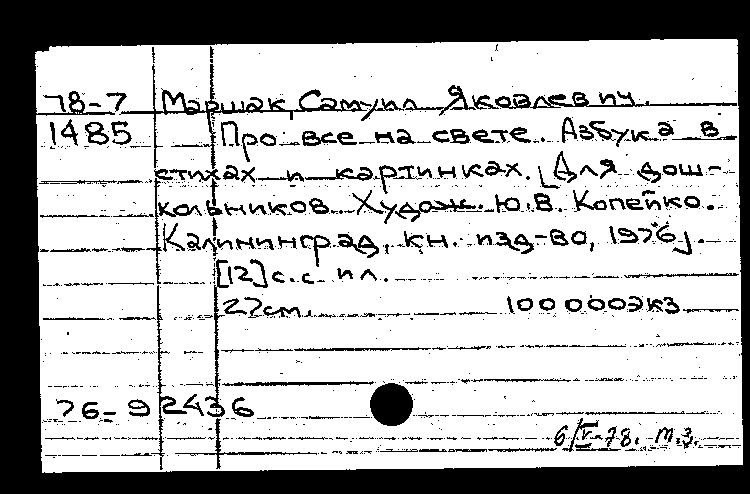 78-7 Маршак, Самуил Яковлевич.
1485 Про все на свете. Азбука в
стихах и картинках. [Для дош-
кольников. Худож. Ю.В. Копейко.
Калининград, кн. изд-во, 1976].
[12] с. с ил.
27см. 100000экз.
76-92436
6/V-78. т.з.